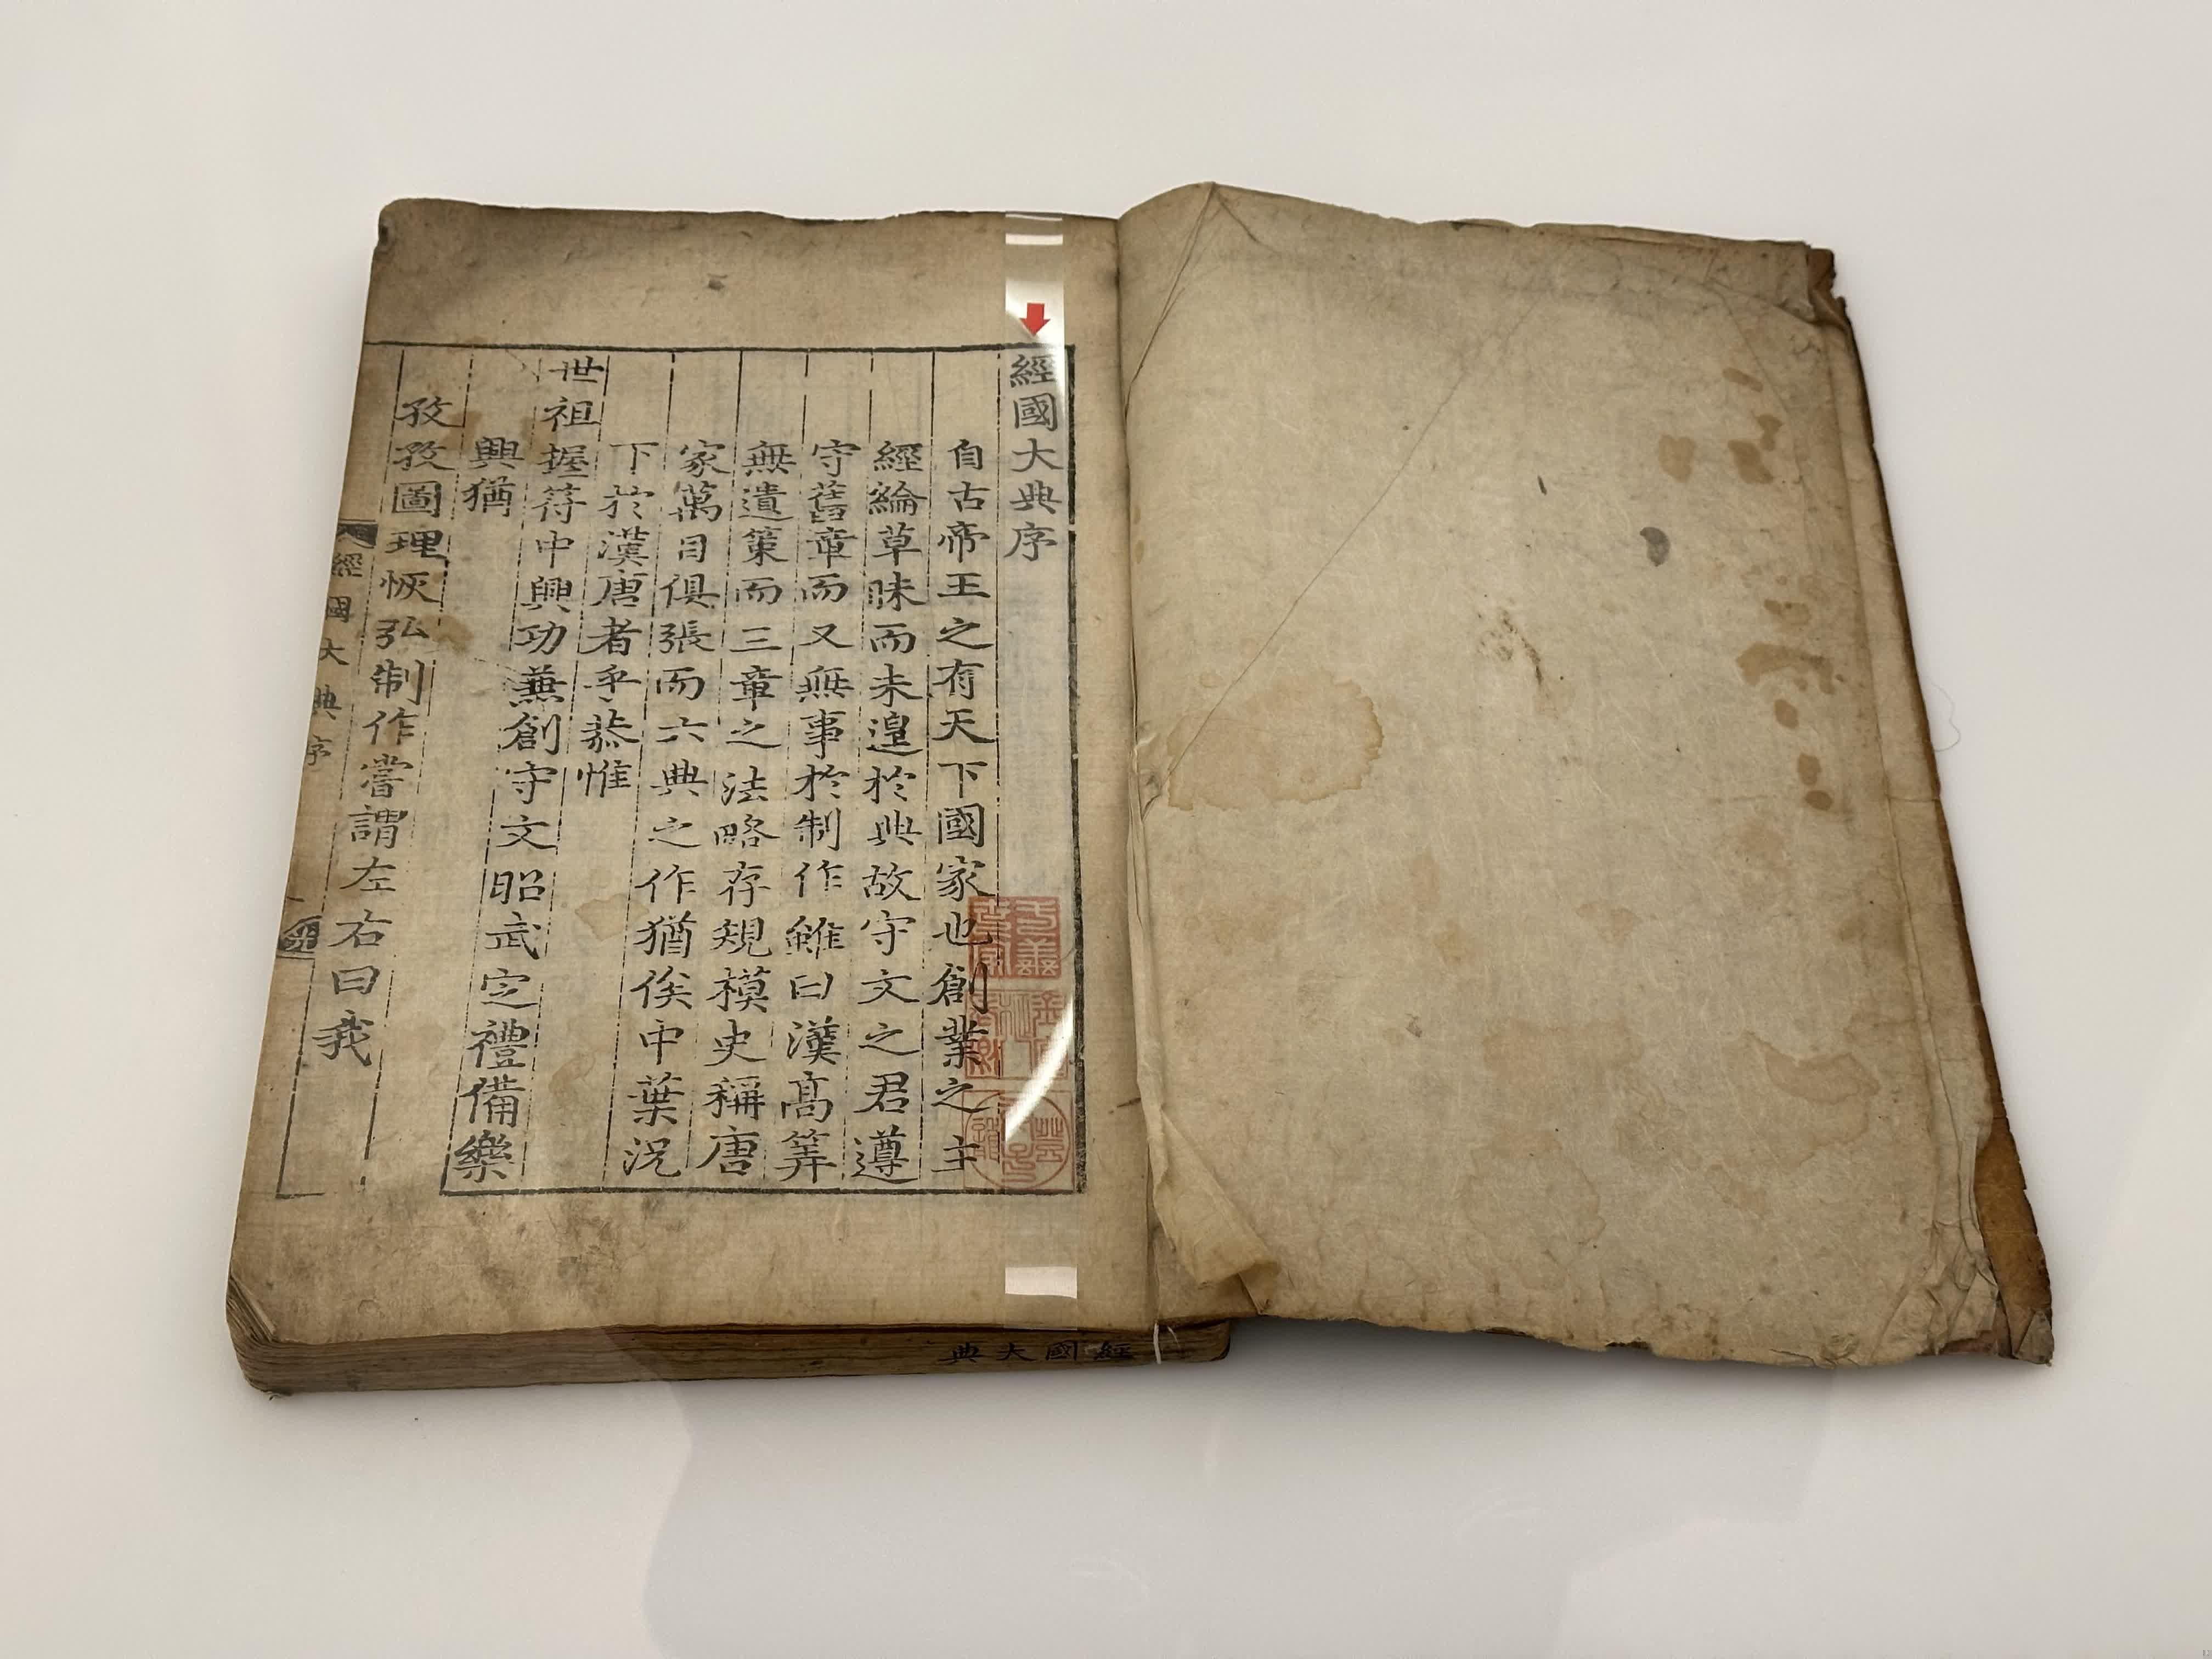 經國大典序
自古帝王之有天下國家也創業之主
經綸草昧而未遑於典故守文之君遵
守舊章而又無事於制作雖曰漢高筭
無遺策而三章之法略存規模史稱唐
家萬目俱張而六典之作猶俟中葉況
下於漢唐者乎恭惟
世祖握符中興功兼創守文昭武定禮備樂
興猶
孜孜圖理恢弘制作嘗謂左右曰我
經國大典序
經國大典